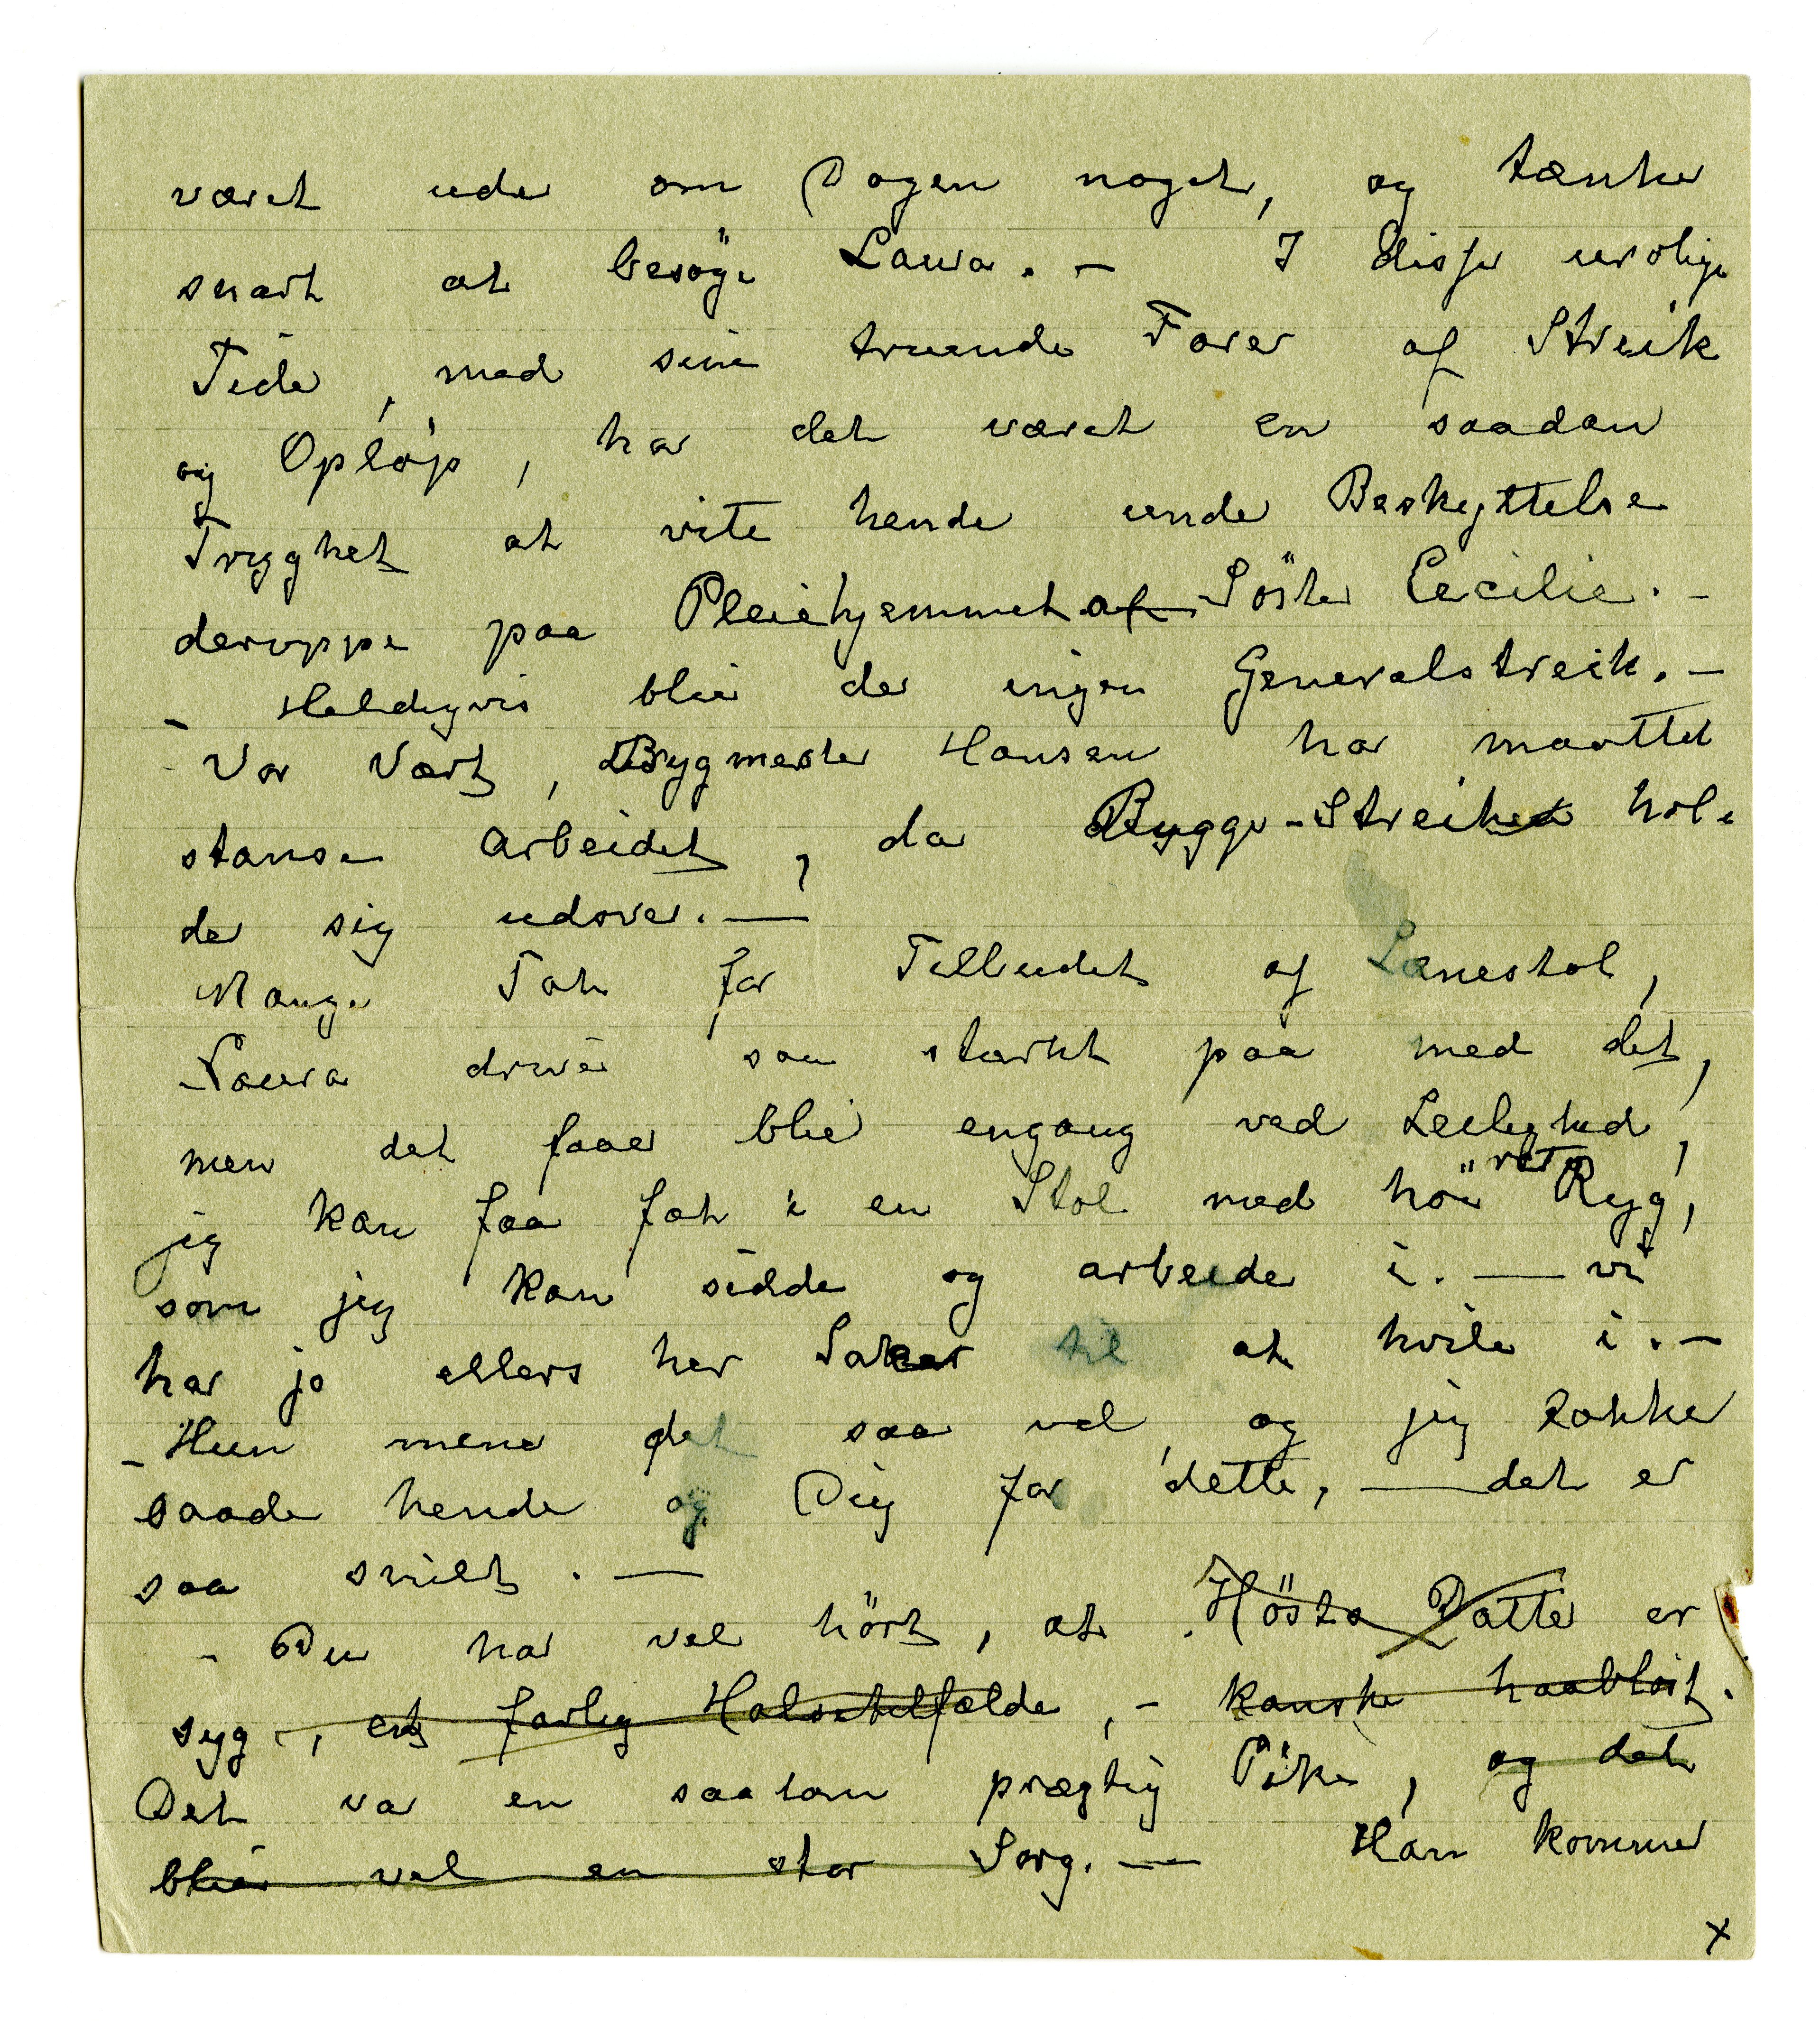 været ude om Dagen noget, og tænker
snart at besöge Laura. — I disse urolige
Tider, med sine truende Farer af Streik
og Opløp, har det været en saadan
Trygghet at vite hende under Beskyttelse
deroppe paa Pleiehjemmet af Söster Cecilie. —
— Heldigvis blir der ingen Generalstreik. —
— Vor Vært, Bygmester Hansen har maattet
stanse Arbeidet, da Bygge-Streiken hol-
der sig udover. —
Mange Tak for Tilbudet af Lænestol,
Laura driver saa stærkt paa med det,
men det faaer blie engang ved Leilighed,
jeg kan faa fat i en Stol med höi ret Ryg,
som jeg kan sidde og arbeide i. — vi
har jo ellers her Saker til at hvile i. —
— Hun mener det saa vel, og jeg takker
baade hende og Dig for dette, — det er
saa snilt. —
— Du har vel hört, at Hösts Datter er
syg —, et farlig Halstilfælde, — kanske haabløst.
Det var en saadan prægtig Pike, og det
blir vel en stor Sorg. — Han kommer
x